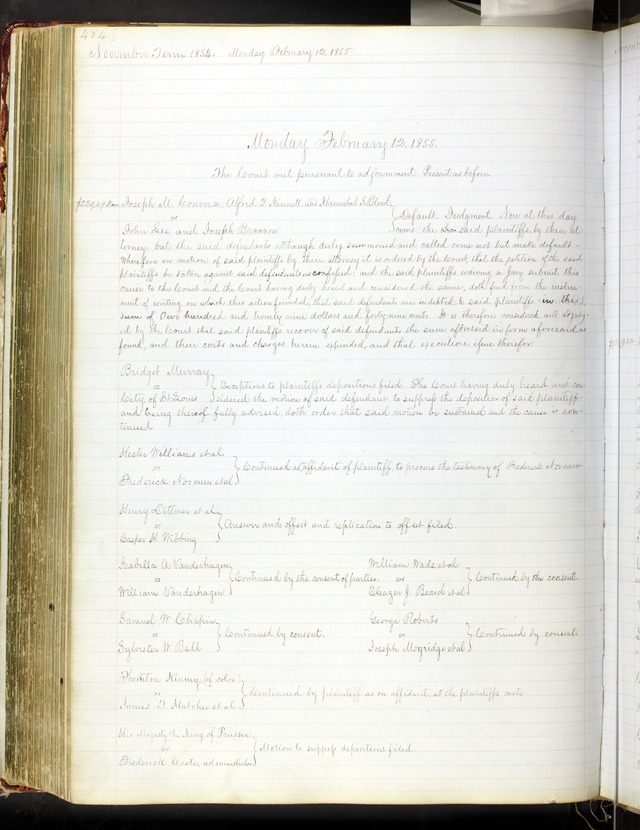 484
November Term 1854. Monday February 12, 1855
Monday February 12, 1855.
The Court met pursuant to adjournment. Present as before.
$229.49 Dam Joseph M. Converse, Alfred D. Kennett and Hannibal S. Blood
vs
John Lee and Joseph Brannon
Default. Judgment. Now at this day
come the said plaintiffs, by their at
torney, but the said defendants although duly summoned and called come not but make default.
Wherefore on motion of said plaintiffs by their attorney it is ordered by the Court that the petition of the said
plaintiffs be taken against said defendants as confessed; and the said plaintiffs waiving a jury submit this
cause to the Court and the Court having duly heard and considered the same, doth find from the instru-
ment of writing on which this action founded, that said defendants are indebted to said plaintiffs in the
sum of Two hundred and twenty nine dollars and forty nine cents. It is therefore considered and adjudg-
ed by the Court that said plaintiffs recover of said defendants the sum aforesaid in form aforesaid as
found, and their costs and charges herein expended, and that execution issue therefor.
Bridget Murray
vs
City of St. Louis
Exceptions to plaintiffs depositions filed. The Court having duly heard and con
sidered the motion of said defendant to suppress the deposition of said plaintiff
and being thereof fully advised, doth order that said motion be sustained and the cause is con-
tinued
Hester Williams et al
vs
Frederick Norcum et al
Continued at affidavit of plaintiff to procure the testimony of Frederick Norcum
Henry Dittmer et al
vs
Casper H. Wibbing
Answer and offset and replication to offset filed.
Isabella A. Vanderhagen
vs
William Vanderhagen
Continued by the consent of parties.
William Wade et al
vs
Eleazer J. Beard et al
Continued by the consent
Samuel W. Chapin
vs
Sylvester W. Ball
Continued by consent.
George Roberts
vs
Joseph Mogridge et al
Continued by consent
Thornton Kinney (of color)
vs
James F. Hatcher et al
Continued by plaintiff as on affidavit, at the plaintiffs costs
His Majesty the King of Prussia
vs
Frederick administrator
Motion to suppress depositions filed.